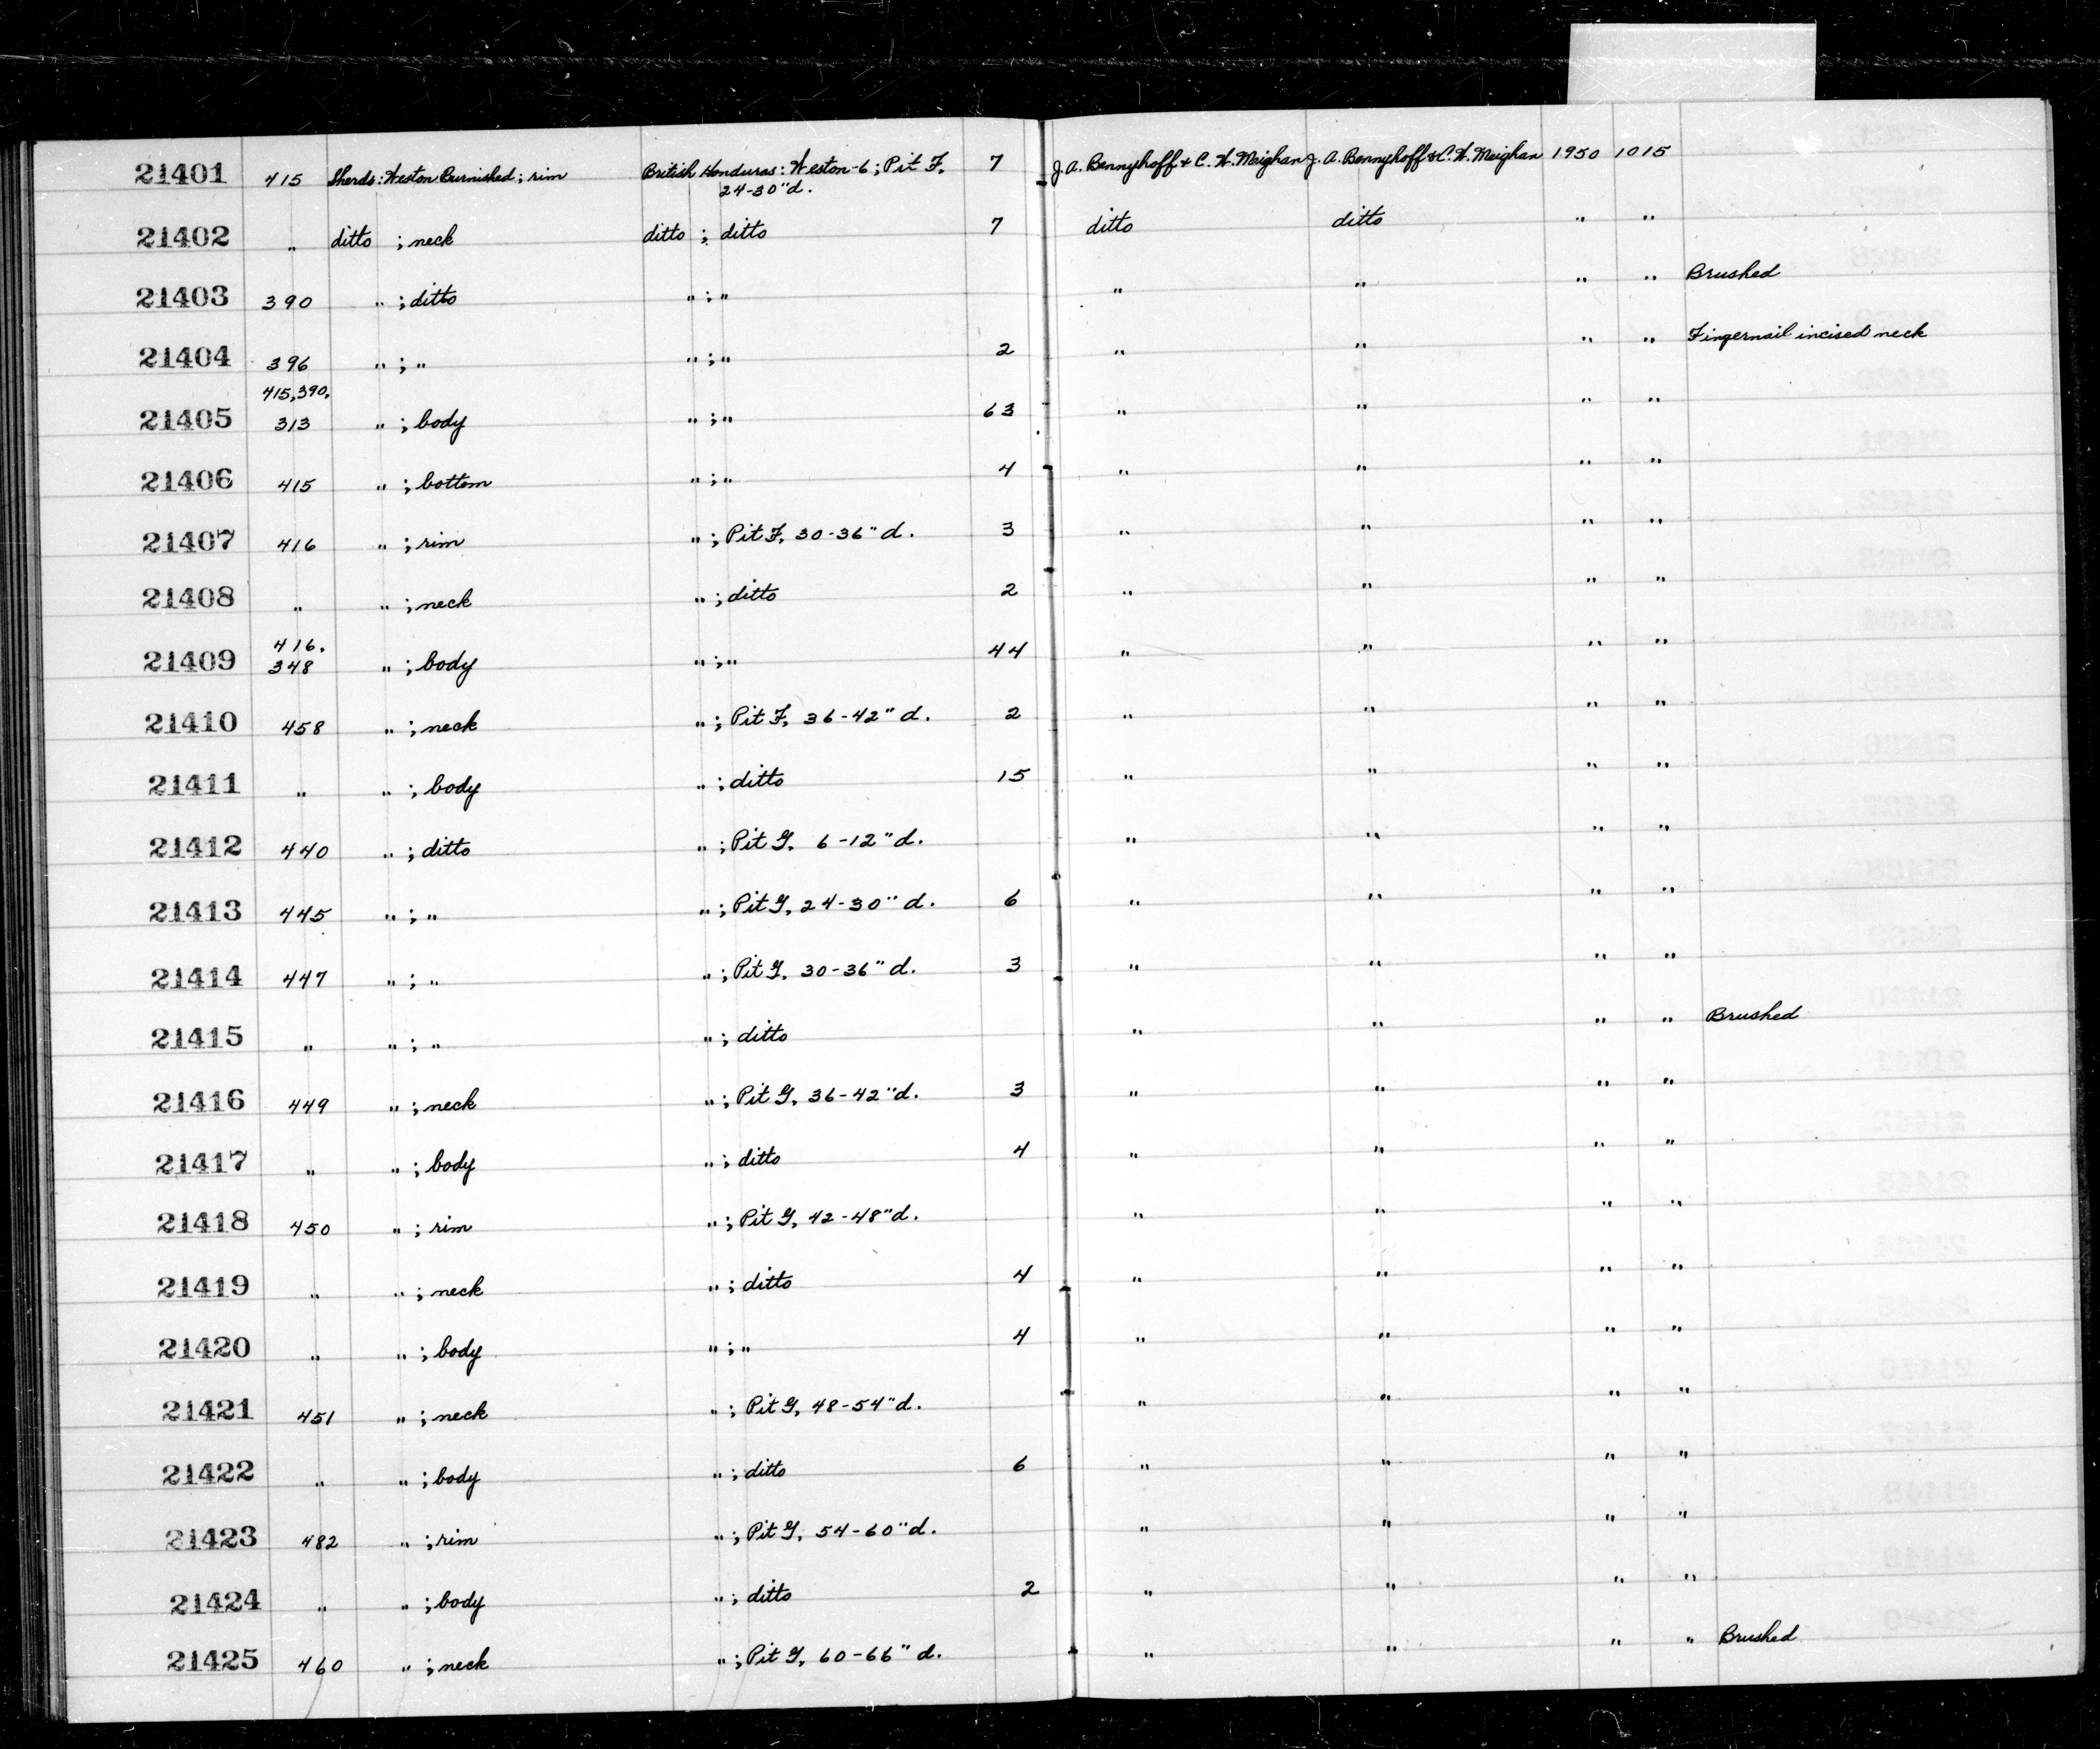 21401 415 Sherds: Weston Burnished; rim British Honduras: Weston-6; Pit F, 7 J. A. Bennyhoff & C. W. Meighan J. A. Bennyhoff & C. W. Meighan 1950 1015
24-30" d.
21402 " ditto ; neck ditto ; ditto 7 ditto ditto " "
21403 390 " ; ditto " ; " " " " " Brushed
21404 396 " ; " " ; " 2 " " " " Fingernail incised neck
415, 390,
21405 313 " ; body " ; " 63 " " " "
21406 415 " ; bottom " ; " 4 " " " "
21407 416 " ; rim " ; Pit F, 30-36" d. 3 " " " "
21408 " " ; neck " ; ditto 2 " " " "
416,
21409 348 " ; body " ; " 44 " " " "
21410 458 " ; neck " ; Pit F, 36-42" d. 2 " " " "
21411 " " ; body " ; ditto 15 " " " "
21412 440 " ; ditto " ; Pit G, 6-12" d. " " " "
21413 445 " ; " " ; Pit G, 24-30" d. 6 " " " "
21414 447 " ; " " ; Pit G, 30-36" d. 3 " " " "
21415 " " ; " " ; ditto " " " " Brushed
21416 449 " ; neck " ; Pit G, 36-42" d. 3 " " " "
21417 " " ; body " ; ditto 4 " " " "
21418 450 " ; rim " ; Pit G, 42-48" d. " " " "
21419 " " ; neck " ; ditto 4 " " " "
21420 " " ; body " ; " 4 " " " "
21421 451 " ; neck " ; Pit G, 48-54" d. " " " "
21422 " " ; body " ; ditto 6 " " " "
21423 482 " ; rim " ; Pit G, 54-60" d. " " " "
21424 " " ; body " ; ditto 2 " " " "
21425 460 " ; neck " ; Pit G, 60-66" d. " " " " Brushed